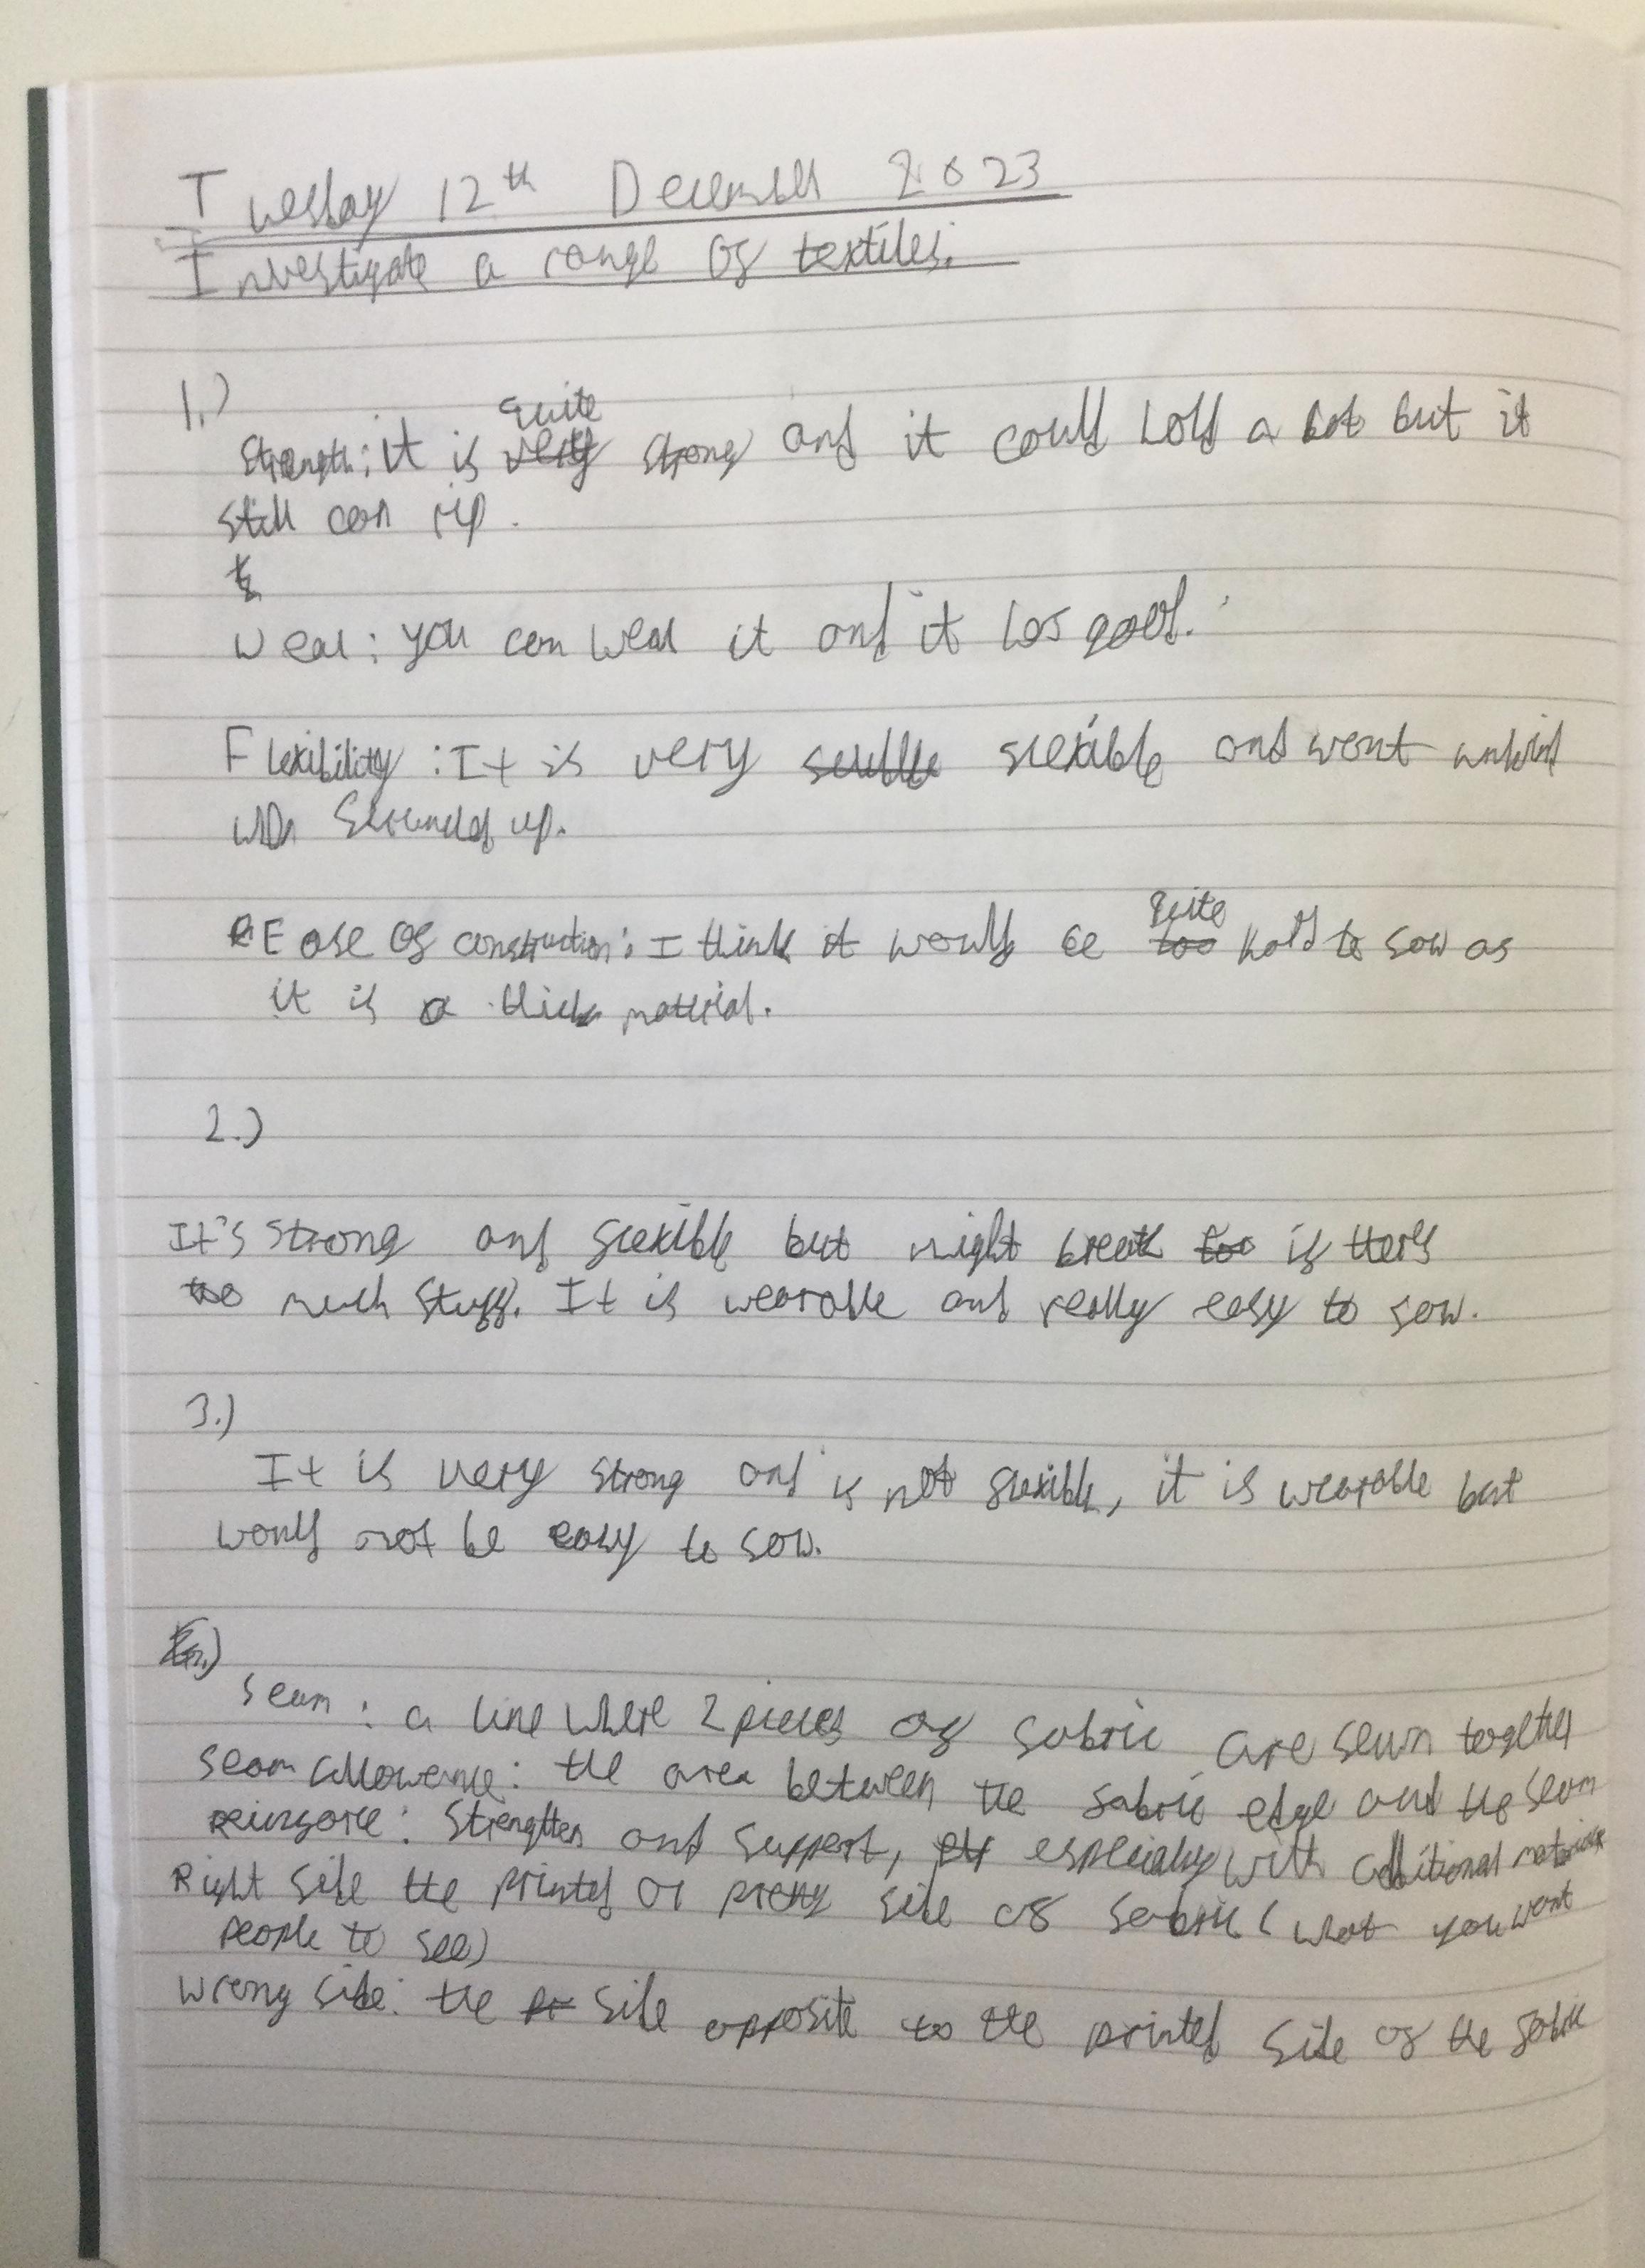 Tuesday 12th December 2023
Investigate a range of textiles.
1.)
quite
Strength: it is very strong and it could hold a lot but it
still can rip.
Wear: you can wear it and it has good.
Flexibility: It is very flexible and wont
up.
Ease of construction: I think it would be quite too hard to sow as
it is a thick material.
2.)
It's strong and flexible but might break too if there's
too much stuff. It is wearable and really easy to sow.
3.)
It is very strong and is not flexible, it is wearable but
would not be easy to sow.
Seam: a line where 2 pieces of fabric are sewn together
Seam allowance: the area between the fabric edge and the seam
Reinforce: Strengthen and support, especially with additional material
Right side the printed or pretty side of fabric (what you want
people to see)
Wrong side: the side opposite to the printed side of the fabric